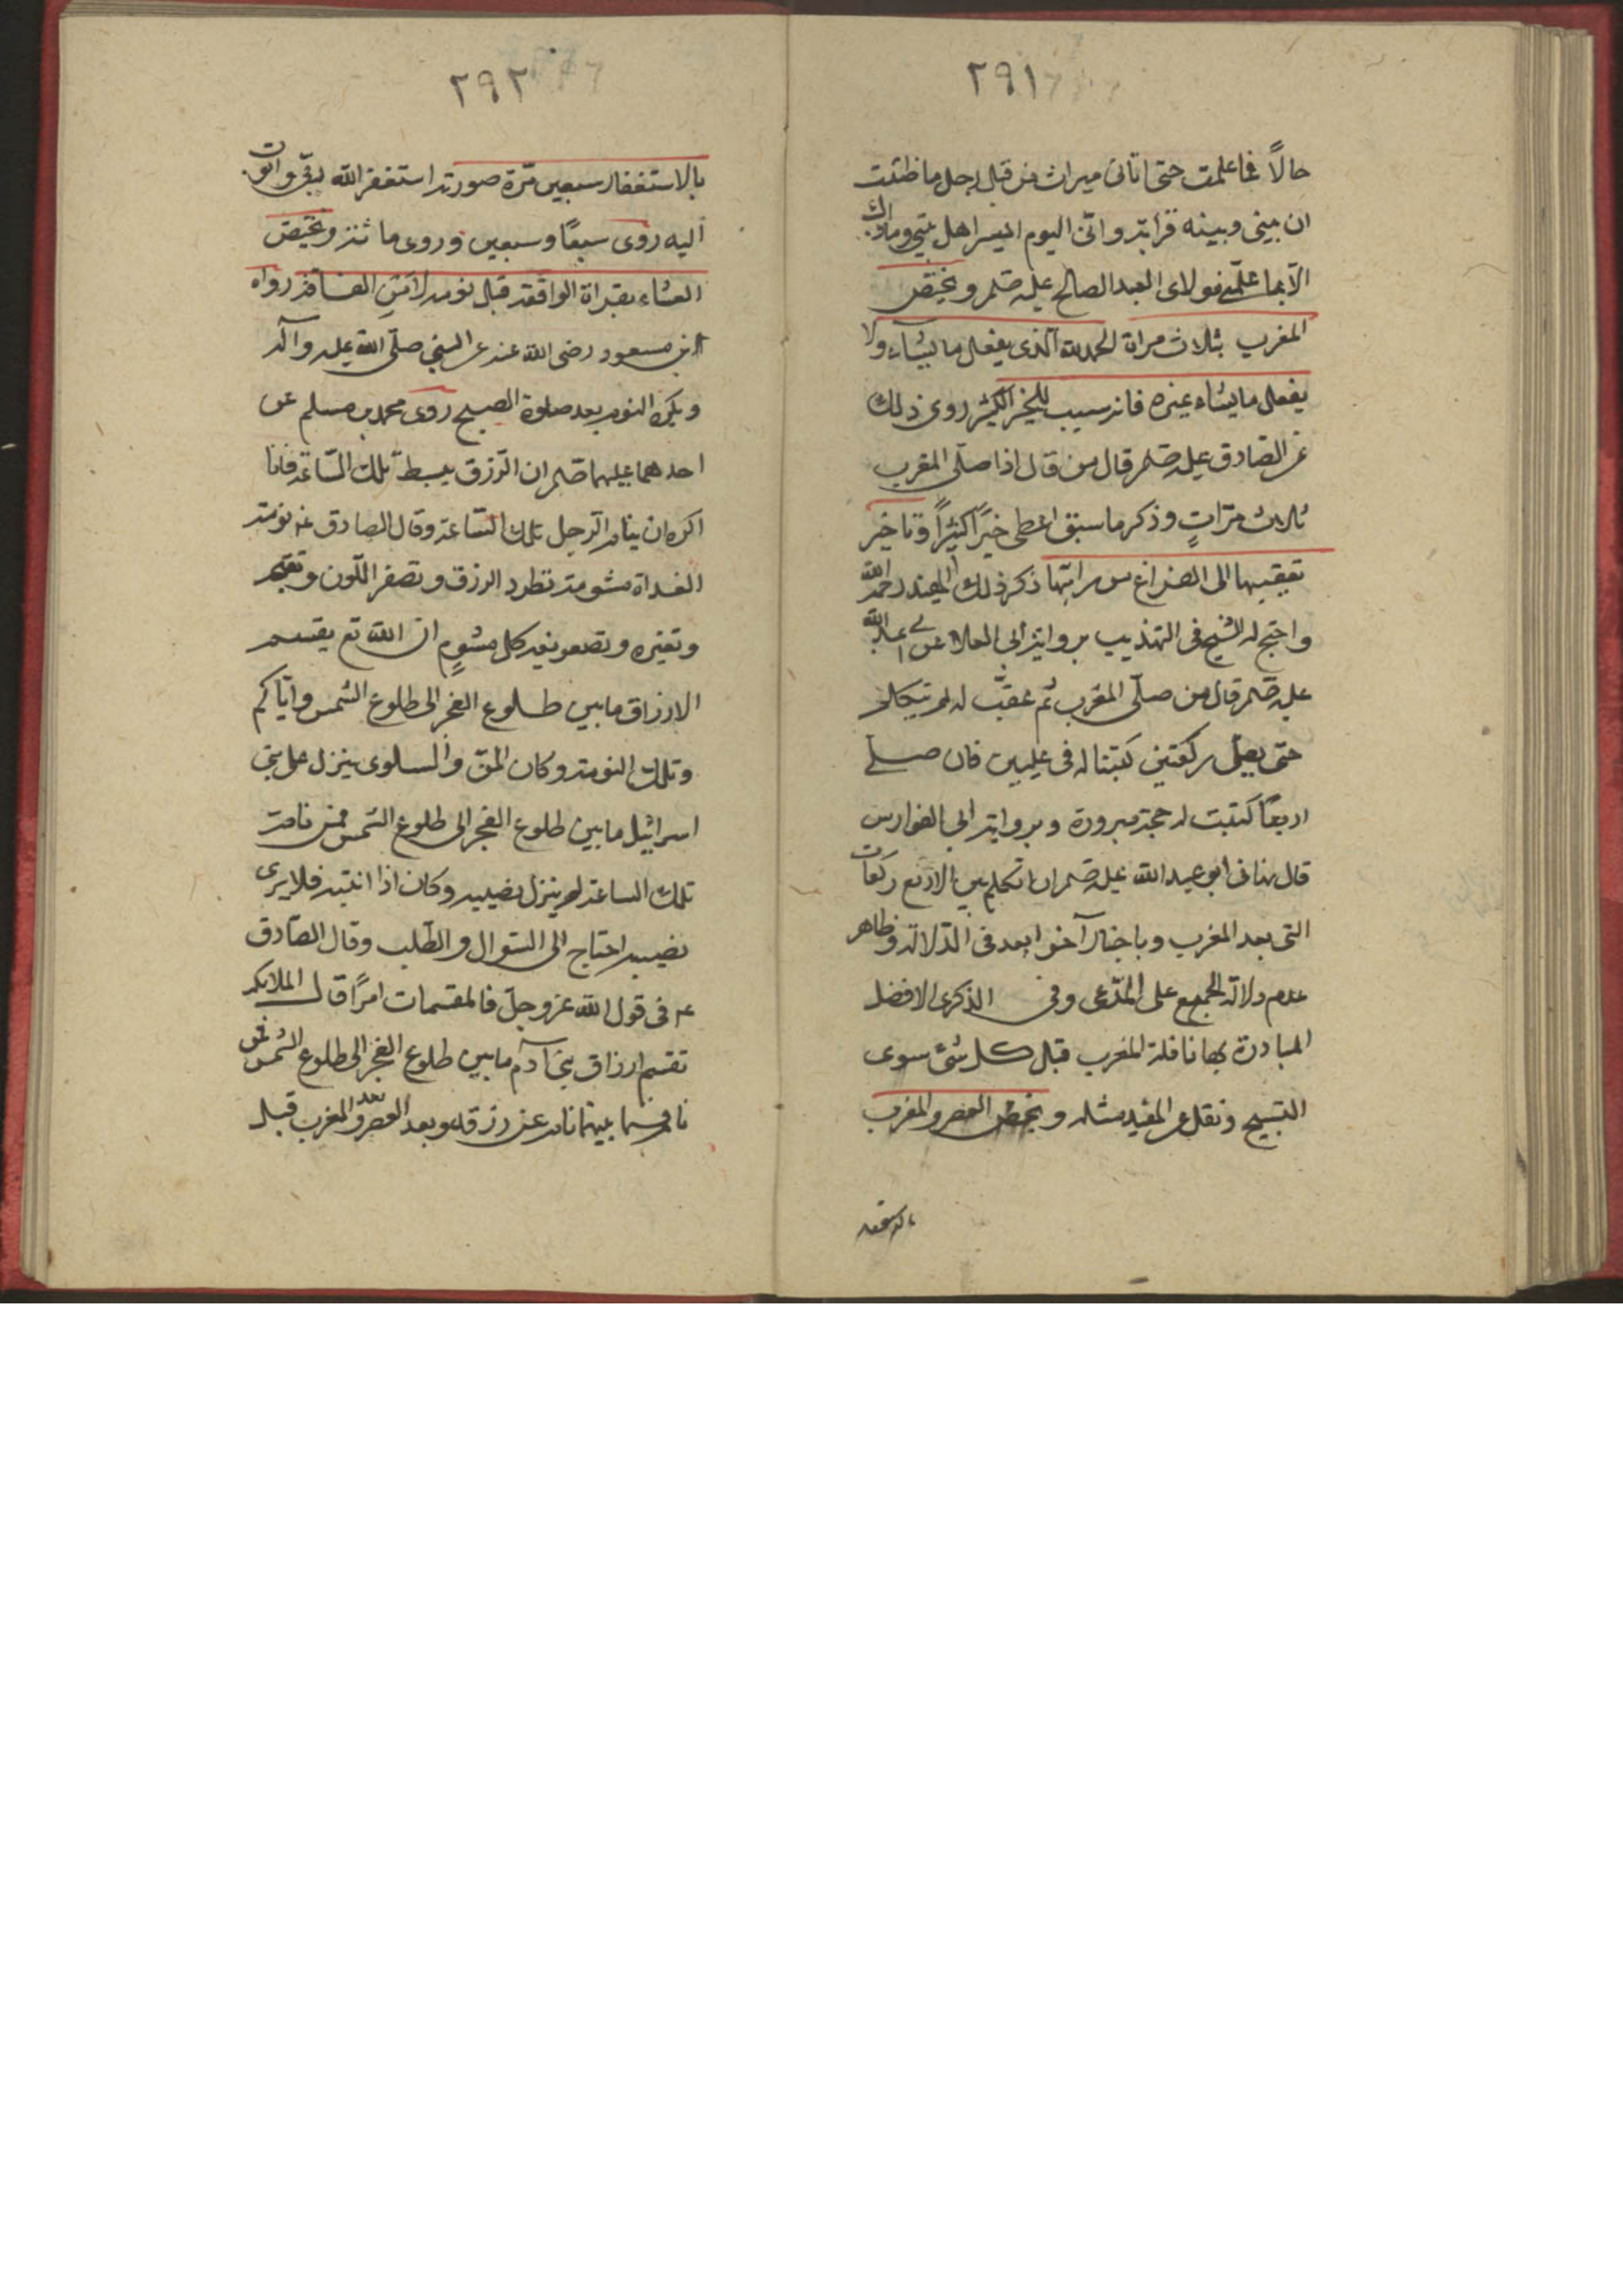 ٢٩١
حالاً فما علمت حتى اتانى ميراث من قبل رجل ما ظننت
ان بينى وبينه قرابة وانى اليوم ايسر اهل بيتى وماذاك
الا بما علمنى مولاى العبد الصالح عليه صلم ويختص
المغرب بثلاث مراة الحمد لله الذى يفعل ما يشاء ولا
يفعل ما يشاء غيره فانه سبب للخير الكثير روى ذلك
عن الصادق عليه صلم قال من قال اذا صلى المغرب
ثلاث مراتٍ وذكر ما سبق اعطى خيرًا كثيرًا وتاخير
تعقيبها الى الفراغ من راتبتها ذكر ذلك المفيد رحمه الله
واحتج له الشيخ فى التهذيب برواية ابى العلا عن ابى عبد الله
عليه صلم قال من صلى المغرب ثم عقب له لم يتكلم
حتى يصلى ركعتين كتبتا له فى عليين فان صلى
اربعًا كتبت له حجة مبرورة وبرواية ابى الفوارس
قال نهانى ابو عبد الله عليه صلم ان اتكلم بين الاربع ركعات
التى بعد المغرب وباخبار آخر ابعد فى الدلالة وظاهر
عدم دلالة الجميع على المدعى وفى الذكرى الافضل
المبادرة بها نافلة المغرب قبل كل شئ سوى
التسبيح ونقل عن المفيد مثله ويختص العصر والمغرب
بالاستغفار
٢٩٢
بالاستغفار سبعين مرة صورته استغفر الله ربى واتوب
اليه روى سبعًا وسبعين وروى مائة ويختص
العشاء بقراة الواقعة قبل نومه لامن الفاقة رواه
ابن مسعود رضى الله عنه عن النبى صلى الله عليه وآله
ويكره النوم بعد صلوة الصبح روى محمد بن مسلم عن
احدهما عليهما صلم ان الرزق يبسط تلك الساعة فانا
اكره ان ينام الرجل تلك الساعة وقال الصادق ع نومة
الغداة مشومة تطرد الرزق وتصفر اللون وتقبحه
وتغيره وهو نوم كل مشومٍ ان الله تع يقسم
الارزاق ما بين طلوع الفجر الى طلوع الشمس واياكم
وتلك النومة وكان المن والسلوى ينزل على بنى
اسرائيل ما بين طلوع الفجر الى طلوع الشمس فمن نام
تلك الساعة لم ينزل نصيبه وكان اذا انتبه فلا يرى
نصيبه احتاج الى السوال والطلب وقال الصادق
ع فى قول الله عز وجل فالمقسمات امرًا قال الملائكة
تقسم ارزاق بنى آدم ما بين طلوع الفجر الى طلوع الشمس فمن
نام فيما بينهما نام عن رزقه وبعد العصر وبعد المغرب قبل